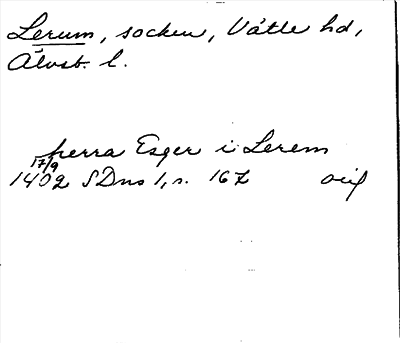 Lerum, socken, Vätle hd,
Älvsb. l.
herra Esger i Lerem
17/9
1402 SDns 1, s. 167 orig